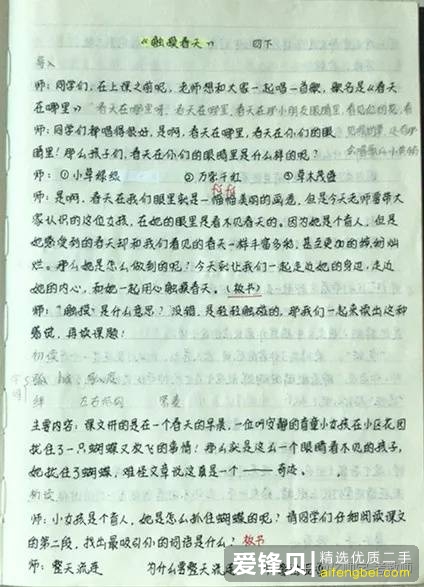 《触摸春天》 四下
导入
师：同学们，在上课之前呢，老师想和大家一起唱一首歌，歌名是《春天
在哪里》 春天在哪里呀，春天在哪里，春天在那小朋友眼睛里，看见红的花，看
师：同学们都唱得很好，是啊，春天在哪里，春天在你们的眼
睛里！那么孩子们，春天在你们的眼睛里是什么样的呢？
师：①小草绿绿 ②万紫千红 ③草木茂盛
师：是啊，春天在我们眼里就是一幅幅美丽的画卷，但是今天老师要带大
家认识的这位女孩，在她的眼里是看不见春天的。因为她是个盲人，但是
她感受到的春天却和我们看见的春天一样丰富多彩，甚至更加的绚丽灿
烂。那么她是怎么做到的呢？今天就让我们一起走近她的身边，走近
她的内心，和她一起用心触摸春天。（板书）
师："触摸"是什么意思？没错，是轻轻触碰的，那我们一起来读出这种
感觉，再读课题！
初读
主要内容：课文讲的是在一个春天的早晨，一位叫安静的盲童小女孩在小区花园
抓住了一只蝴蝶又放飞的事情！那么就是这么一个眼睛看不见的孩子，
她抓住了蝴蝶，难怪文章说这真是一个——奇迹。
师：小女孩是个盲人，她是怎么抓住蝴蝶的呢？请同学们仔细阅读课文
的第二段，找出最吸引你的词语是什么？板书
师：整天流连 为什么要整天流连
爱锋贝 精选优质二手
aifengbei.com